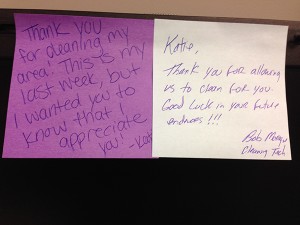 Thank you
for cleaning my
area! This is my
last week, but
I wanted you to
know that I
appreciate
you! -Kat
Katie,
Thank you for allowing
us to clean for you.
Good Luck in your future
endvoes!!!
Bob
Cleaning Tech